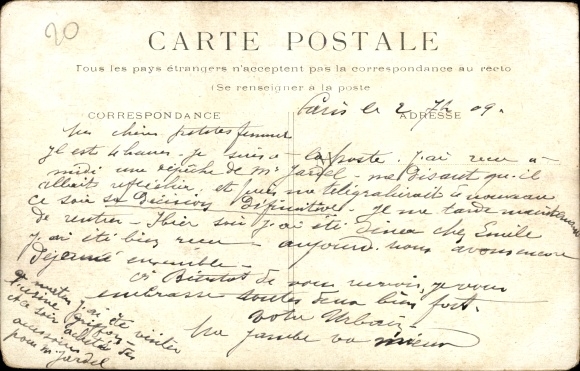 20
CARTE POSTALE
Tous les pays étrangers n'acceptent pas la correspondance au recto
(Se renseigner à la poste
CORRESPONDANCE
ADRESSE
Paris le 2 7bre 09.
Mes chères petites femmes
Il est 4 heures je suis à la poste. j'ai reçu à
midi une dépêche de Mr Jardel - me disant qu'il
allait réfléchir et puis me télégraphierait à nouveau
ce soir sa Décision Définitive. Je me tarde maintenant
de rentrer - Hier soir j'ai été Diner chez Emile
j'ai été bien reçu - aujourd. nous avons encore
Déjeuné ensemble -
Bientot de vous revoir, je vous
embrasse toutes deux bien fort.
Votre Urbain
Ma jambe va mieux
matin j'ai été visiter
l'usine Griffon
ce soir acheter des
accessoires
pour Mr Jardel